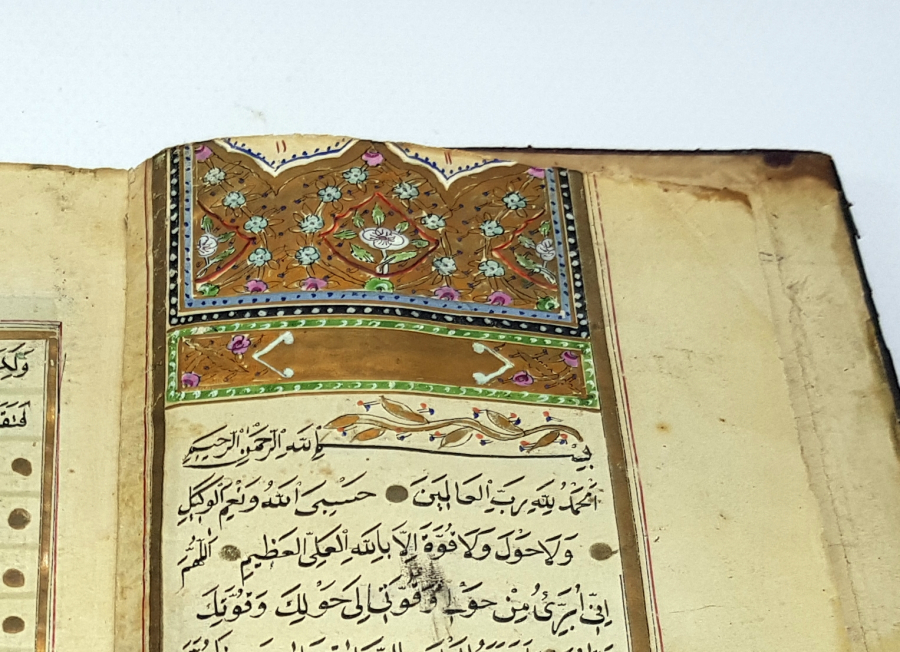 بِسْمِ اللهِ الرَّحْمٰنِ الرَّحِيمِ
اَلْحَمْدُ لِلّٰهِ رَبِّ الْعَالَمِينَ حَسْبِىَ اللهُ وَنِعْمَ الْوَكِيلُ
وَلَا حَوْلَ وَلَا قُوَّةَ اِلَّا بِاللهِ الْعَلِىِّ الْعَظِيمِ اَللّٰهُمَّ
اِنِّى اُبَرِّئُ مِنْ حَوْلِى وَقُوَّتِى اِلَى حَوْلِكَ وَقُوَّتِكَ